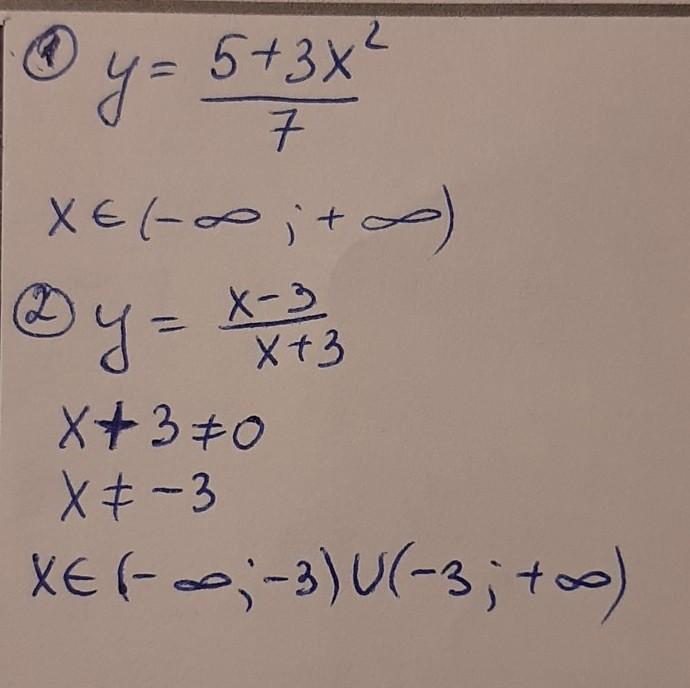 ① y = (5+3x²)/7
x ∈ (-∞ ; +∞)
② y = (x-3)/(x+3)
x+3≠0
x ≠ -3
x ∈ (-∞; -3) ∪ (-3; +∞)